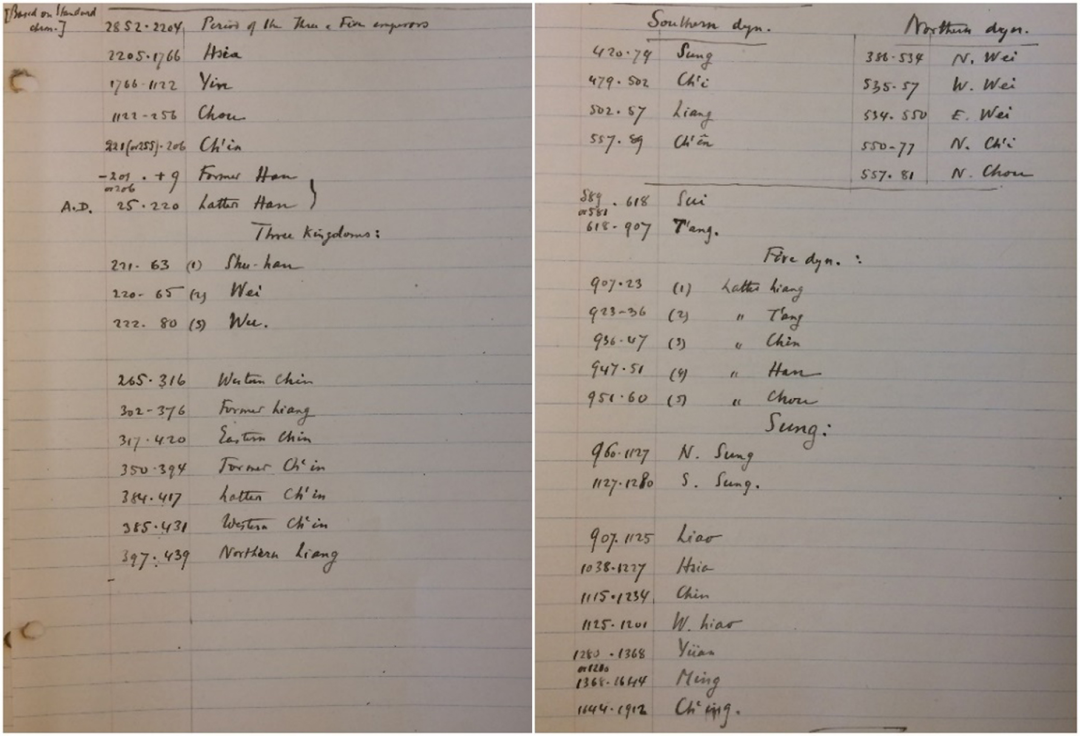 [Based on Standard
chron.]
2852-2204 Period of the Three & Five emperors
2205-1766 Hsia
1766-1122 Yin
1122-256 Chou
221 (or 255)-206 Ch'in
-209 . +9 Former Han
or 206
A.D. 25-220 Latter Han
Three Kingdoms:
221-63 (1) Shu-han
220-65 (2) Wei
222-80 (3) Wu.
265-316 Western Chin
302-376 Former Liang
317-420 Eastern Chin
350-394 Former Ch'in
384-417 Latter Ch'in
385-431 Western Ch'in
397-439 Northern Liang
Southern dyn.
420-79 Sung
479-502 Ch'i
502-57 Liang
557-89 Ch'ên
Northern dyn.
386-534 N. Wei
535-57 W. Wei
534-550 E. Wei
550-77 N. Ch'i
557-81 N. Chou
589 - 618 Sui
or 581
618-907 T'ang.
Five dyn.:
907-23 (1) Latter Liang
923-36 (2) " T'ang
936-47 (3) " Chin
947-51 (4) " Han
951-60 (5) " Chou
Sung:
960-1127 N. Sung
1127-1280 S. Sung.
907-1125 Liao
1038-1227 Hsia
1115-1234 Chin
1125-1201 W. Liao
1280-1368 Yüan
or 1280
1368-1644 Ming
1644-1912 Ch'ing.